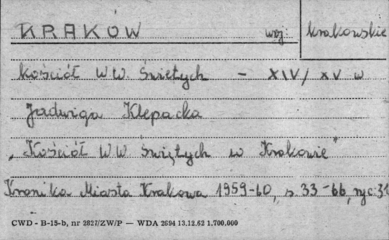 KRAKÓW woj: krakowskie
kościół WW. Świętych - XIV/XV w
Jadwiga Klepacka
"Kościół WW Świętych w Krakowie"
Kronika Miasta Krakowa 1959-60, s. 33-66, ryc. 31
CWD - B-15-b, nr 2827/ZW/P — WDA 2694 13.12.63 1.700.000